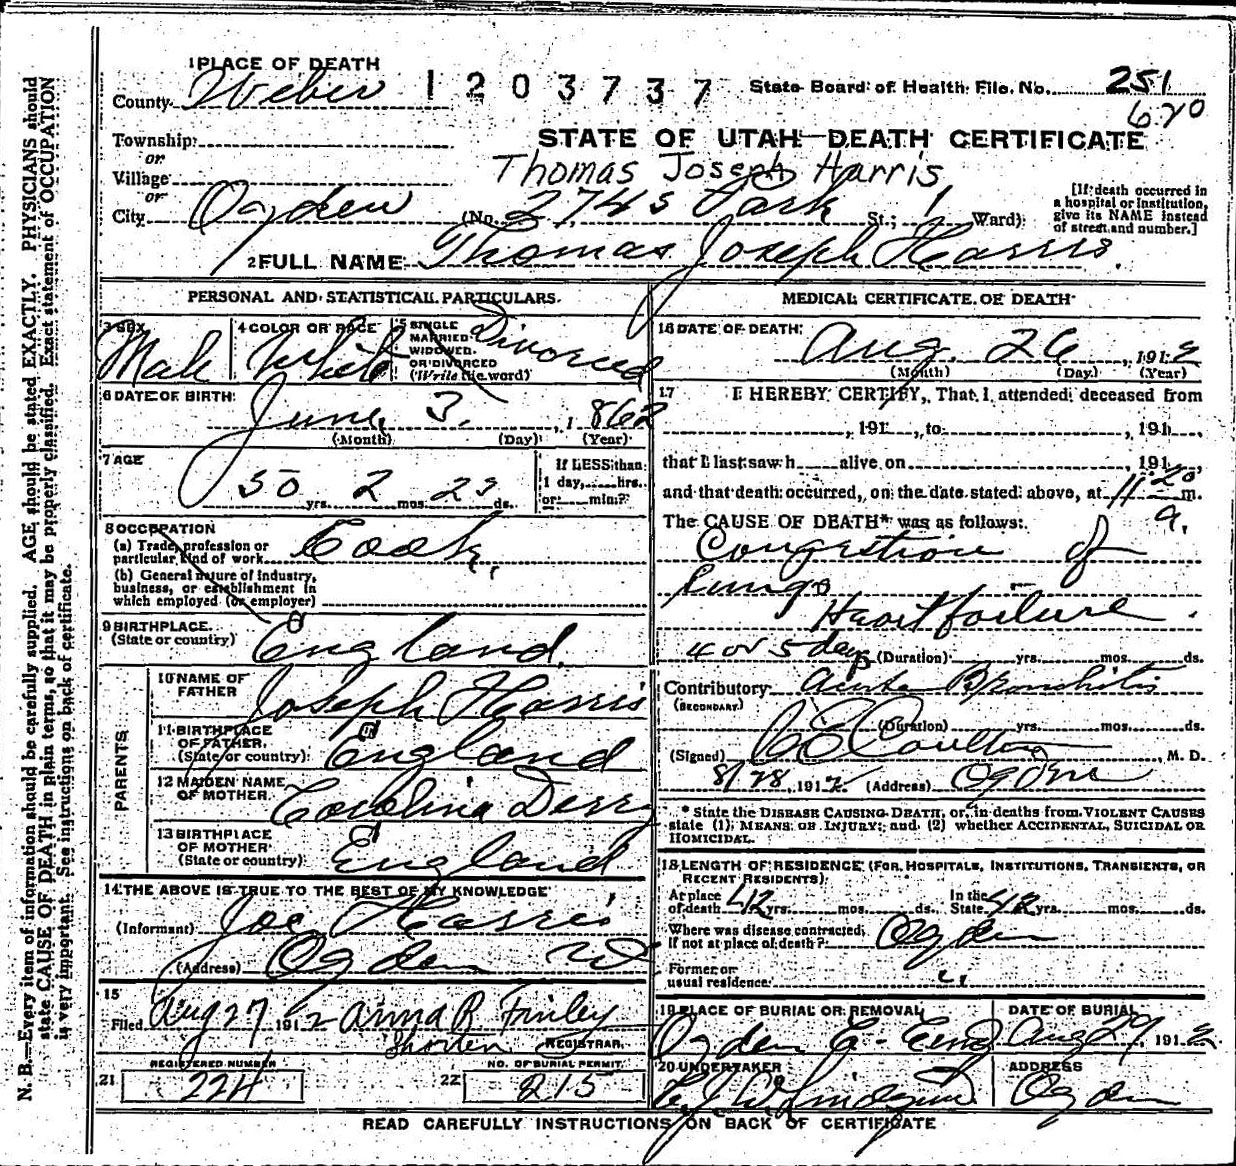 1 PLACE OF DEATH
County Weber 1203737 State Board of Health File No. 251
620
Township
or
STATE OF UTAH—DEATH CERTIFICATE
Village
or
Thomas Joseph Harris
City Ogden (No. 2745 Park St.; 1 Ward)
[If death occurred in a hospital or institution, give its NAME instead of street and number.]
2 FULL NAME Thomas Joseph Harris.
PERSONAL AND STATISTICAL PARTICULARS.
3 SEX Male
4 COLOR OR RACE White
5 SINGLE MARRIED WIDOWED OR DIVORCED (Write the word) Divorced
6 DATE OF BIRTH: June 3. 1862
(Month) (Day) (Year)
7 AGE 50 yrs. 2 mos. 23 ds.
If LESS than 1 day, hrs. or min.?
8 OCCUPATION
(a) Trade, profession or particular kind of work Cook.
(b) General nature of industry, business, or establishment in which employed (or employer)
9 BIRTHPLACE (State or country) England.
PARENTS
10 NAME OF FATHER Joseph Harris
11 BIRTHPLACE OF FATHER (State or country) England
12 MAIDEN NAME OF MOTHER Carolina Derry
13 BIRTHPLACE OF MOTHER (State or country) England
14 THE ABOVE IS TRUE TO THE BEST OF MY KNOWLEDGE
(Informant) Joe Harris
(Address) Ogden
15
Filed Aug 27 1912 Anna R Finley
REGISTRAR.
REGISTERED NUMBER
21 224
NO. OF BURIAL PERMIT
22 215
MEDICAL CERTIFICATE OF DEATH
16 DATE OF DEATH: Aug. 26, 1912
(Month) (Day) (Year)
17 I HEREBY CERTIFY, That I attended deceased from
, 191 , to , 191 ,
that I last saw h alive on , 191 ,
and that death occurred, on the date stated above, at 11 20 a. m.
The CAUSE OF DEATH* was as follows:
Congestion of
Lungs
Heart failure.
4 or 5 days (Duration) yrs. mos. ds.
Contributory Acute Bronchitis
(SECONDARY)
(Duration) yrs. mos. ds.
(Signed) Coulter, M. D.
8/28, 1912. (Address) Ogden
* State the DISEASE CAUSING DEATH, or, in deaths from VIOLENT CAUSES
state (1) MEANS OF INJURY; and (2) whether ACCIDENTAL, SUICIDAL OR
HOMICIDAL.
18 LENGTH OF RESIDENCE (FOR HOSPITALS, INSTITUTIONS, TRANSIENTS, OR
RECENT RESIDENTS)
At place of death 42 yrs. mos. ds. In the State 42 yrs. mos. ds.
Where was disease contracted, if not at place of death? Ogden
Former or usual residence "
19 PLACE OF BURIAL OR REMOVAL Ogden
DATE OF BURIAL Aug 29 1912
20 UNDERTAKER
ADDRESS Ogden
READ CAREFULLY INSTRUCTIONS ON BACK OF CERTIFICATE
N. B.—Every item of information should be carefully supplied. AGE should be stated EXACTLY. PHYSICIANS should
state CAUSE OF DEATH in plain terms, so that it may be properly classified. Exact statement of OCCUPATION
is very important. See instructions on back of certificate.